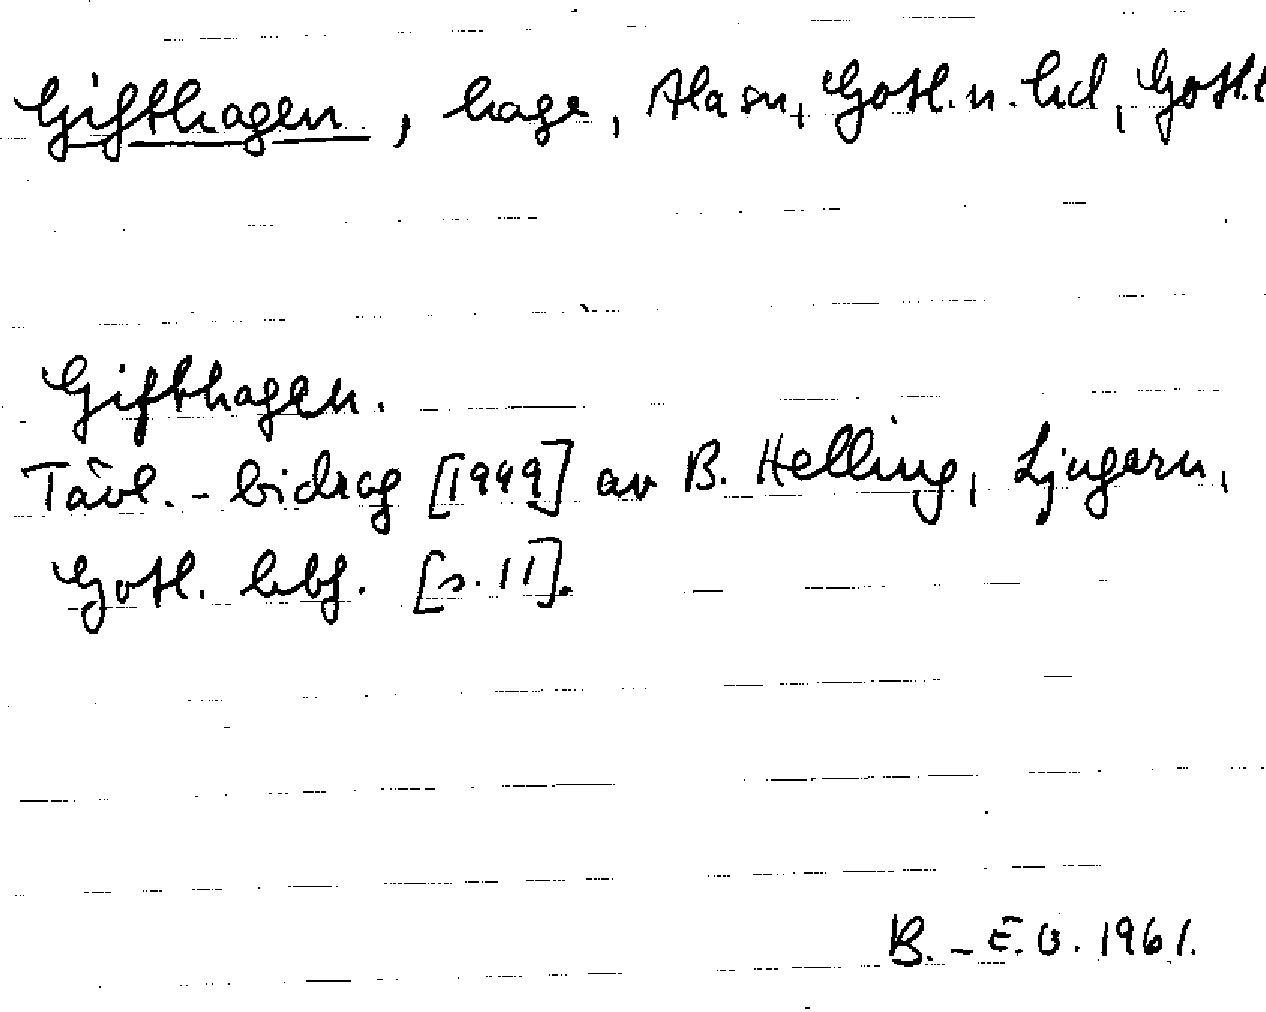 Gifthagen, hage, Ala sn, Gotl. n. hd, Gotl.
Gifthagen.
Tävl.-bidrag [1949] av B. Helling, Ljugarn,
Gotl. hbf. [s. 11].
B.-E.O. 1961.